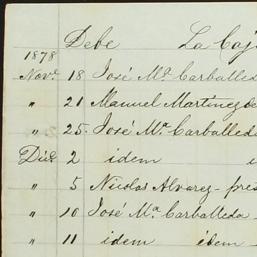 Debe La Caj
1878
Nov.e 18 José M.a Carballed
" 21 Manuel Martinez de
" 25. José M.a Carballeda
Dic.e 2 idem i
" 5 Nicolas Alvarez - pres
" 10 José M.a Carballeda
" 11 idem idem